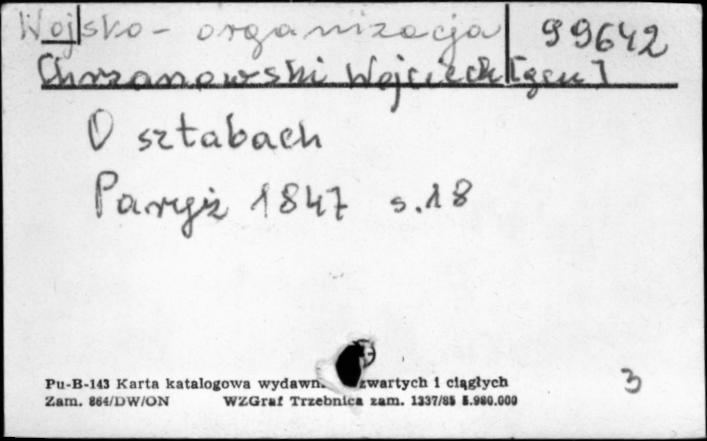 Wojsko - organizacja 99642
Chrzanowski Wojciech [gen]
O sztabach
Paryż 1847 s. 18
Pu-B-143 Karta katalogowa wydawn. zwartych i ciągłych
Zam. 864/DW/ON WZGraf Trzebnica zam. 1337/85 5.980.000
3